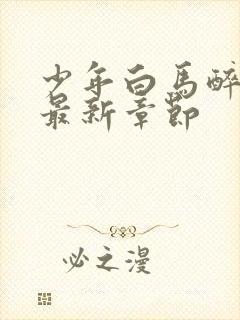 少年白马醉
最新章节
必之漫